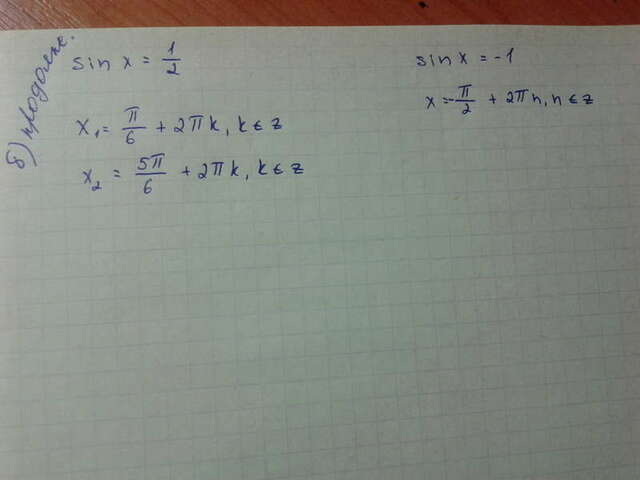 б) продолж.
sin x = 1/2
x₁ = π/6 + 2πk, k ∈ z
x₂ = 5π/6 + 2πk, k ∈ z
sin x = -1
x = -π/2 + 2πn, n ∈ z